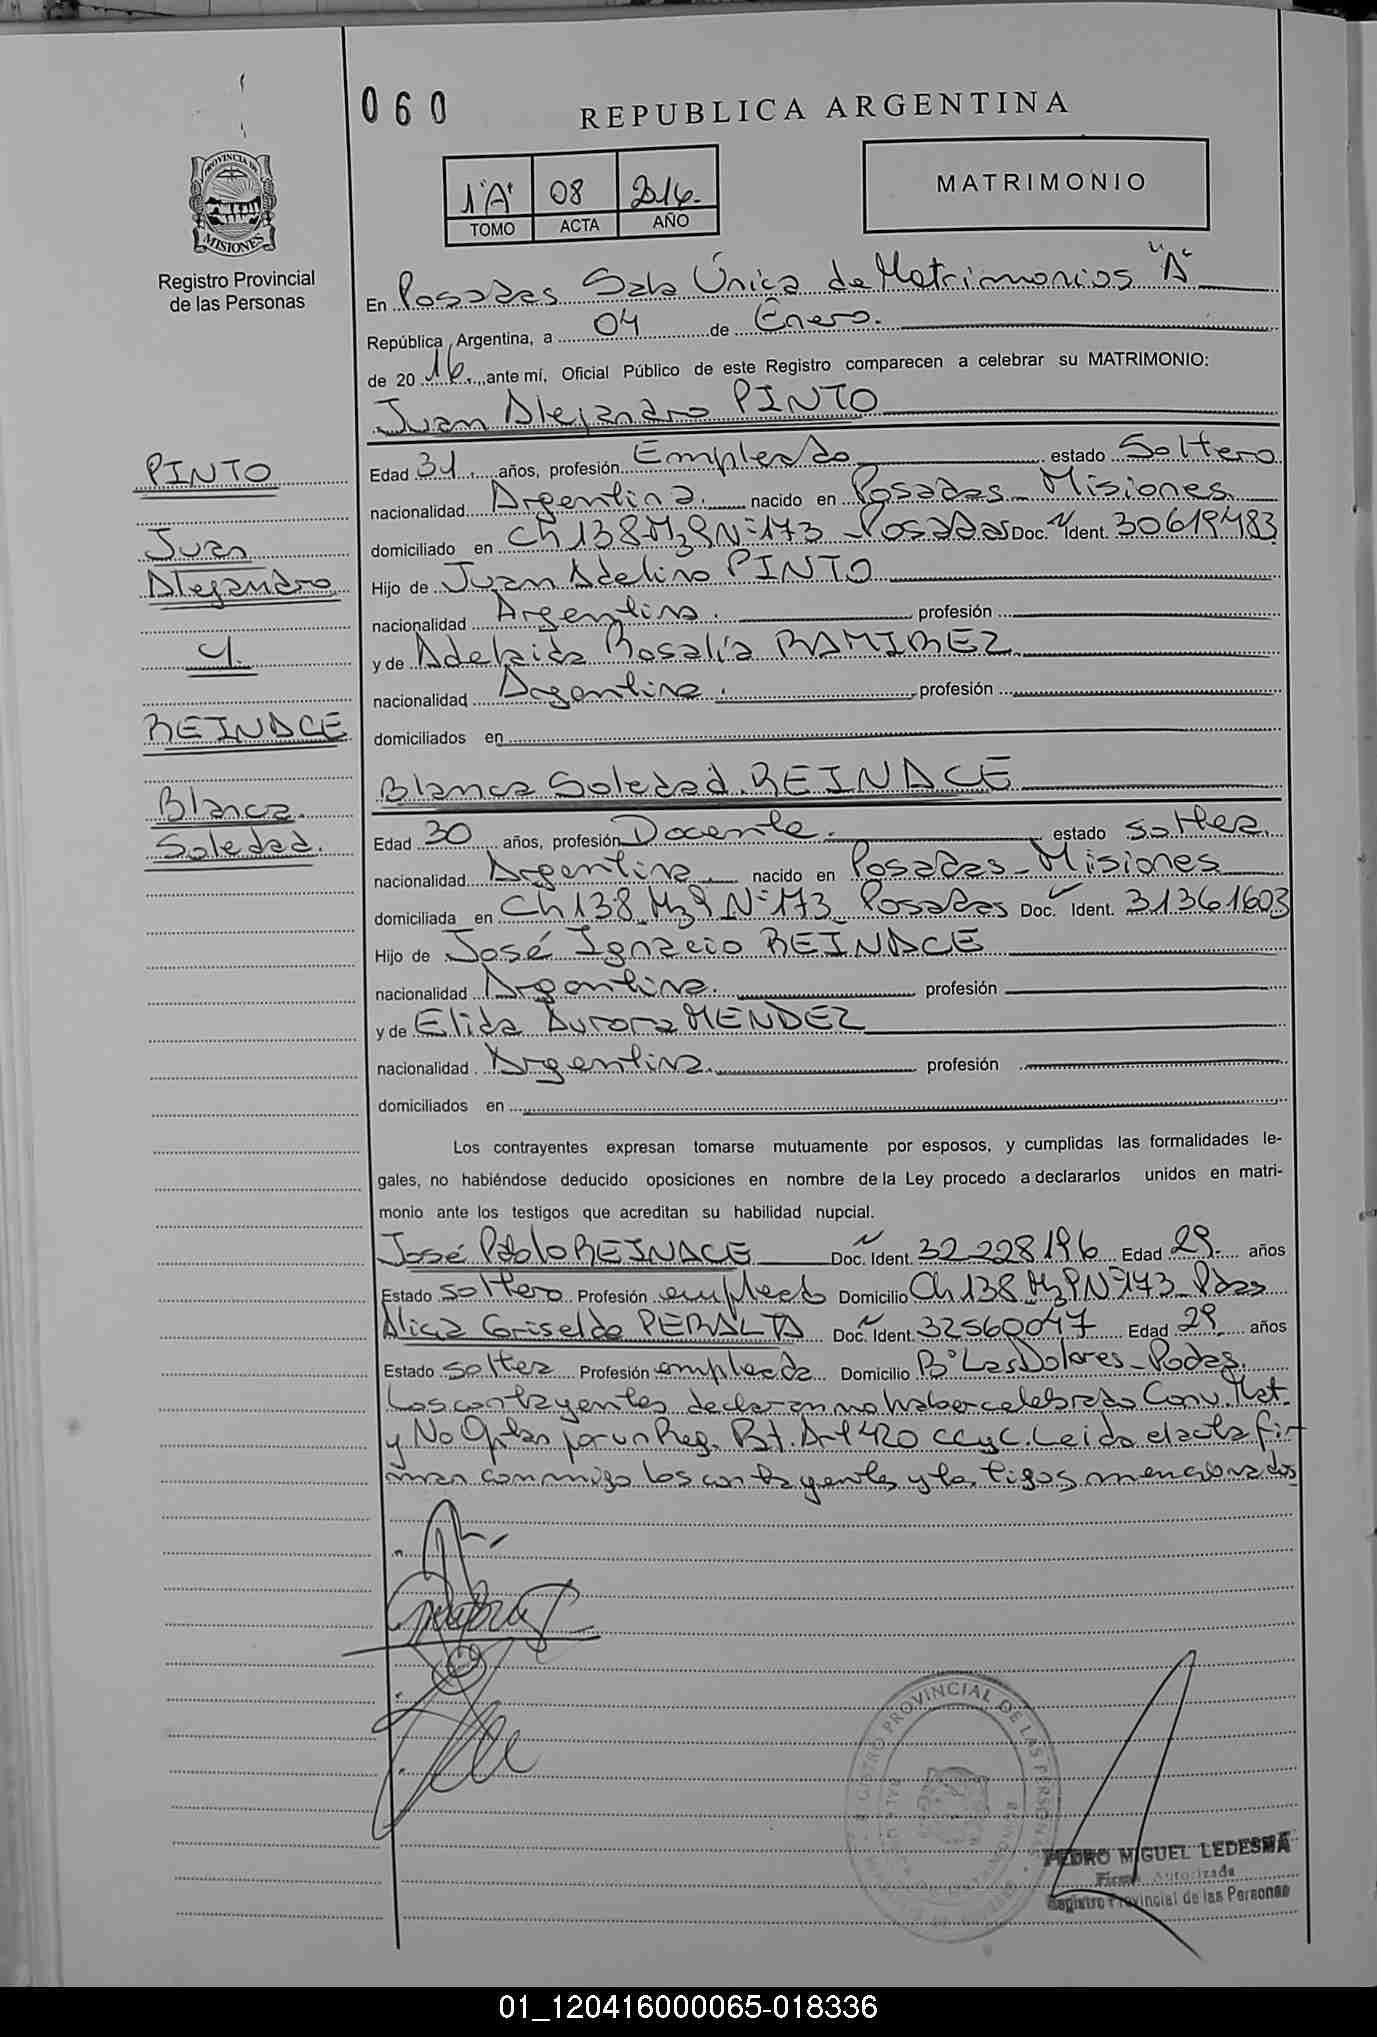 060
REPUBLICA ARGENTINA
1"A" 08 2016.
TOMO ACTA AÑO
MATRIMONIO
PROVINCIA DE MISIONES
Registro Provincial
de las Personas
En Posadas Sala Única de Matrimonios "A"
República Argentina, a 04 de Enero.
de 2016, ante mí, Oficial Público de este Registro comparecen a celebrar su MATRIMONIO:
Juan Alejandro PINTO
Edad 31 años, profesión Empleado estado Soltero
nacionalidad Argentina. nacido en Posadas - Misiones
domiciliado en Ch 138 Mz 9 Nº 173 - Posadas Doc. Ident. 30619483
Hijo de Juan Adelino PINTO
nacionalidad Argentina. profesión
y de Adelaida Rosalía RAMIREZ
nacionalidad Argentina. profesión
domiciliados en
Blanca Soledad REINACE
Edad 30 años, profesión Docente. estado soltera
nacionalidad Argentina nacido en Posadas - Misiones
domiciliada en Ch 138 Mz 9 Nº 173 Posadas Doc. Ident. 31361603
Hijo de José Ignacio REINACE
nacionalidad Argentina. profesión
y de Elida Aurora MENDEZ
nacionalidad Argentina. profesión
domiciliados en
Los contrayentes expresan tomarse mutuamente por esposos, y cumplidas las formalidades le-
gales, no habiéndose deducido oposiciones en nombre de la Ley procedo a declararlos unidos en matri-
monio ante los testigos que acreditan su habilidad nupcial.
José Pablo REINACE Doc. Ident. 32228196 Edad 29 años
Estado soltero Profesión empleado Domicilio Ch 138 Mz 9 Nº 173 Pdas
Alicia Griselda PERALTA Doc. Ident. 32560047 Edad 29 años
Estado soltera Profesión empleada Domicilio Bº Las Dolores - Podas.
Los contrayentes declaran no haber celebrado Conv. Mat.
y No Optan por un Reg. Pat. Art 420 CCyC. Leida el acta fir
man conmigo los contrayentes y testigos mencionados
PINTO
Juan
Alejandro
y.
REINACE
Blanca.
Soledad.
REGISTRO PROVINCIAL DE LAS PERSONAS
PEDRO MIGUEL LEDESMA
Firma Autorizada
Registro Provincial de las Personas
01_120416000065-018336